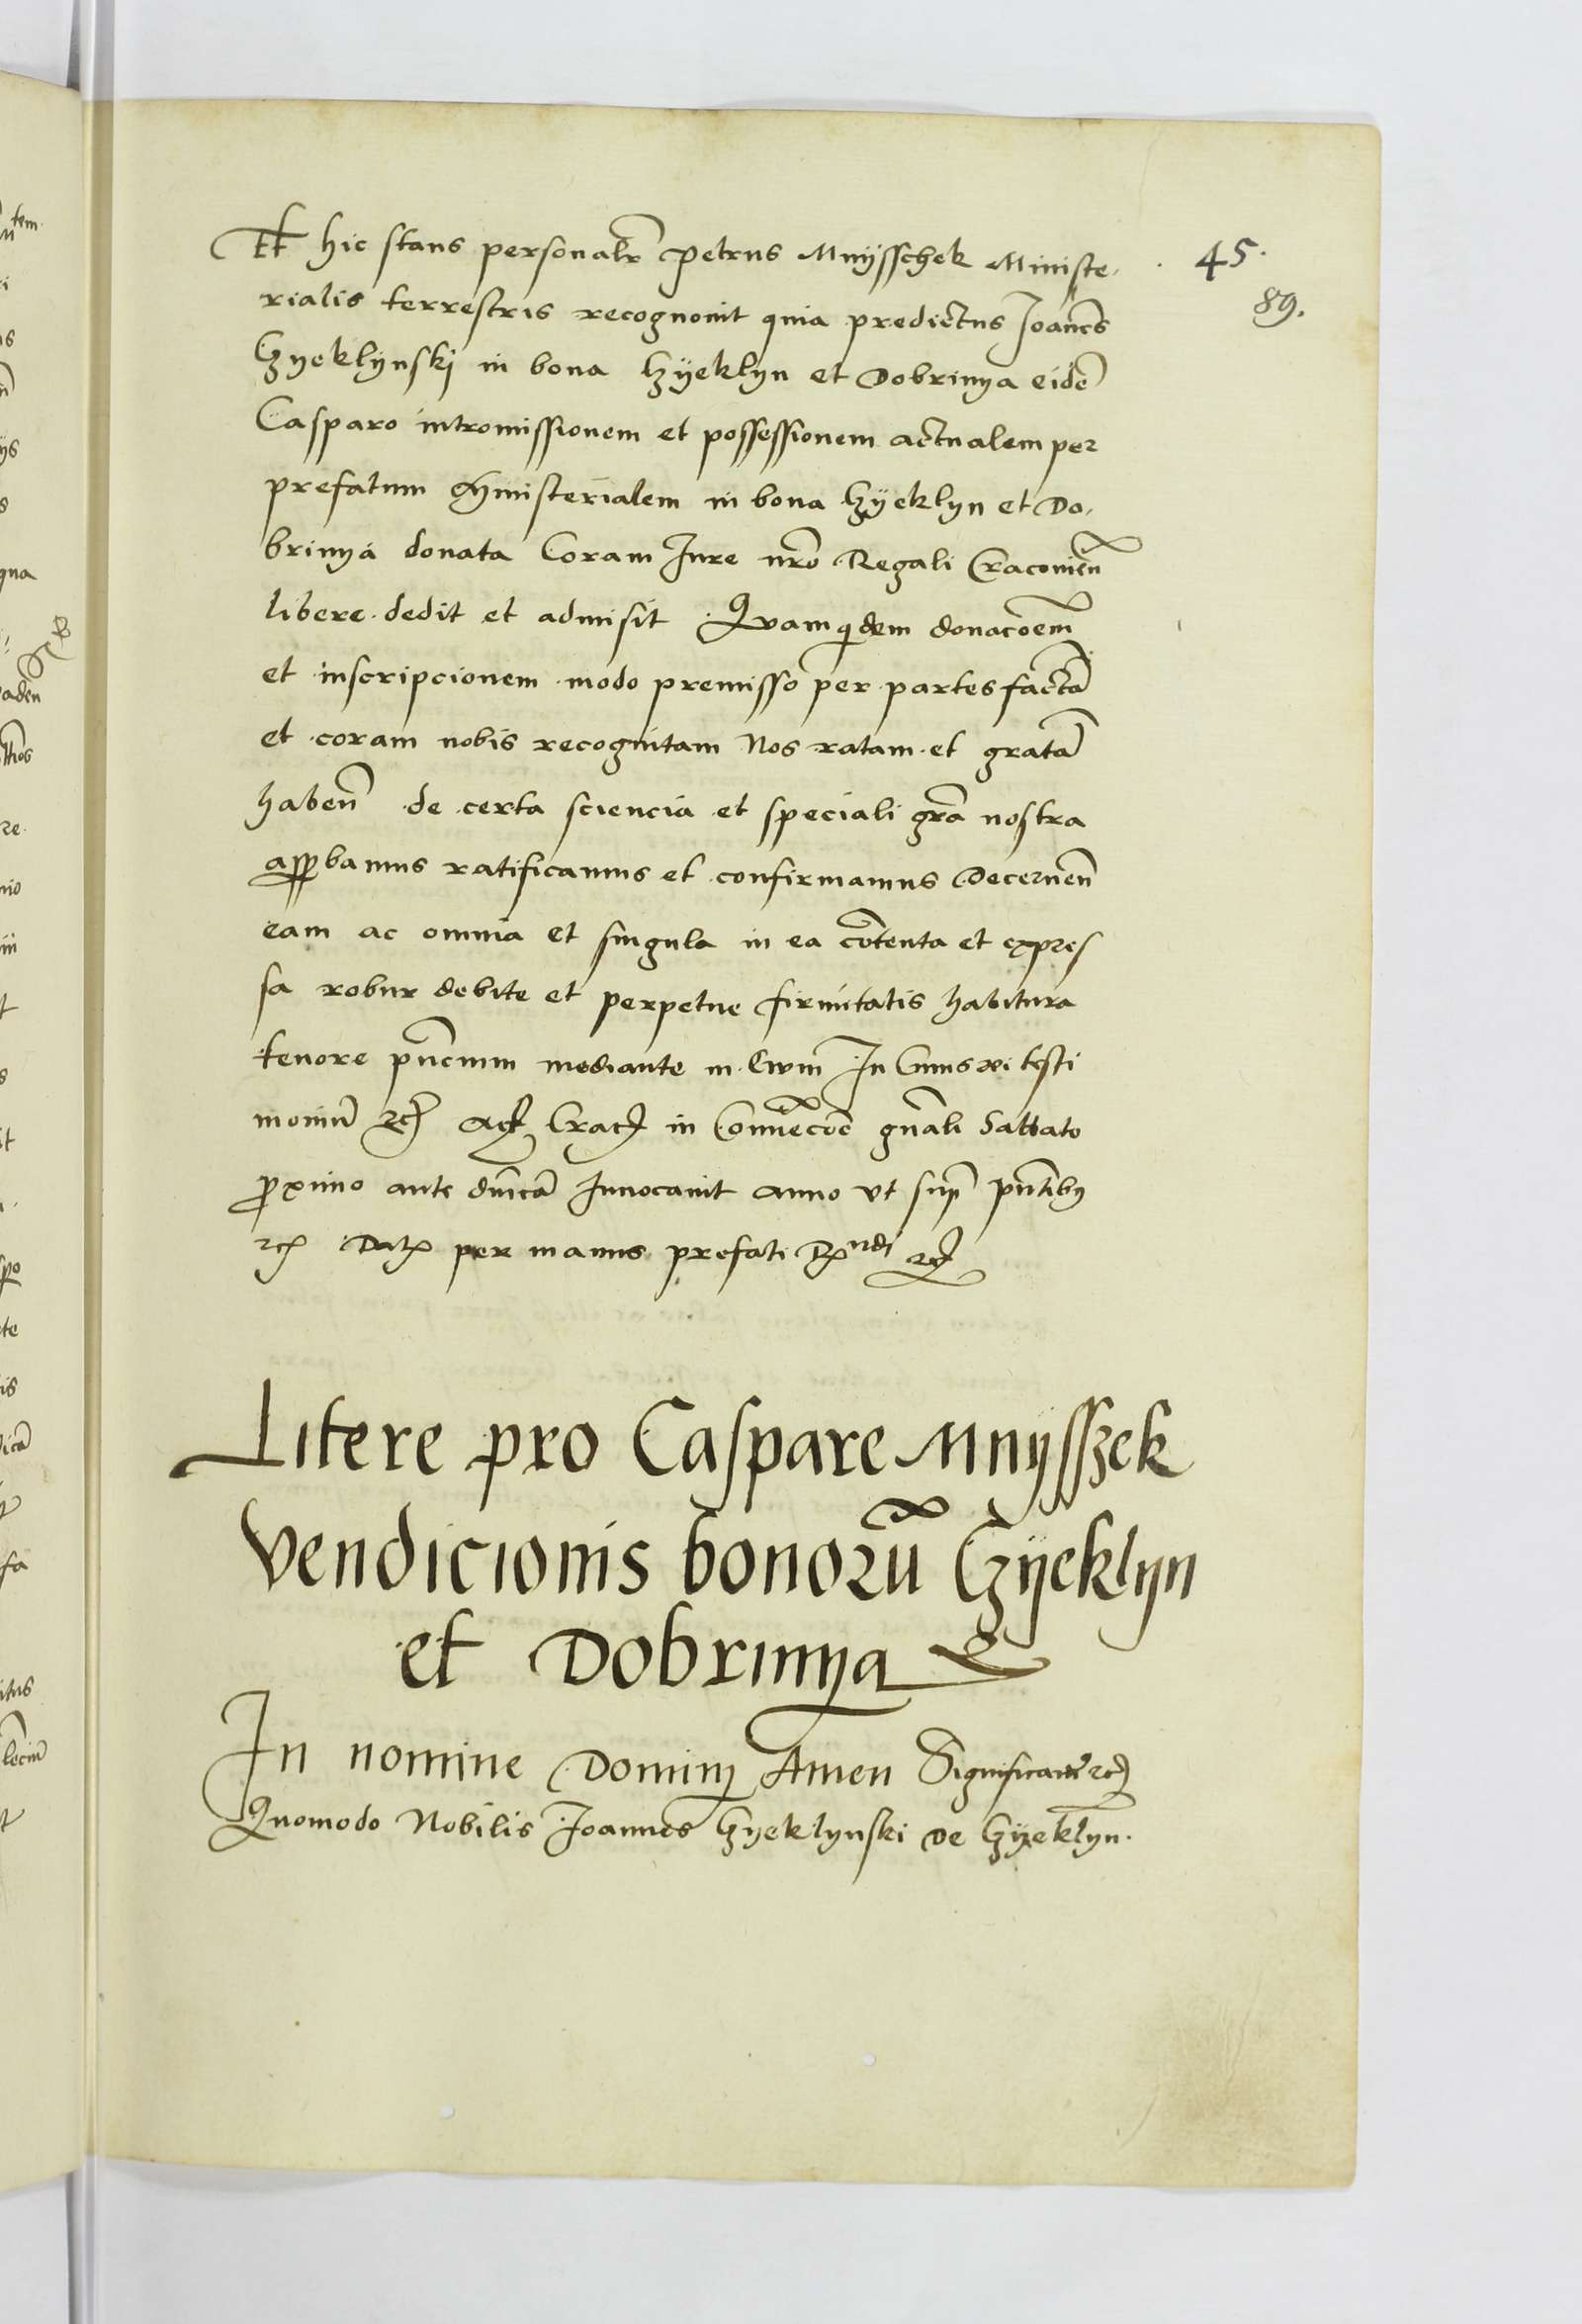 Et hic stans personalr̃ Petrus Mnysschek Ministe-
45.
rialis terrestris recognouit quia predictus Joanes̃
89.
Czyeklynskj in bona Czÿeklyn et Dobrinya eidẽ
Casparo intromissionem et possessionem actualem per
prefatum Ministerialem in bona Czÿeklyn et Do-
brinya donata Coram Jure nr̃o Regali Cracouien̄
libere dedit et admisit Quamqidem donacoem̃
et inscripcionem modo premisso per partes factã
et coram nobis recognitam Nos ratam et gratã
haben̄ de certa sciencia et speciali gr̃a nostra
approbamus ratificamus et confirmamus Decernen̄
eam ac omnia et singula in ea cõtenta et expres
sa robur debite et perpetue firmitatis habitura
tenore pñcium mediante in Cuius rei testi
moniũ etc Act Crac in Conuẽcoe gñali Sabbato
proximo ante dñicã Inuocauit anno vt supã pñtibus
etc Dat per manus prefati Rndi etc
Litere pro Caspare Mnysszek
vendicionis bonorũ Czÿeklyn
et Dobrinya
In nomine Dominj Amen Significamꝰ etc
Quomodo Nobilis Joannes Czyeklynski de Czÿeklyn.